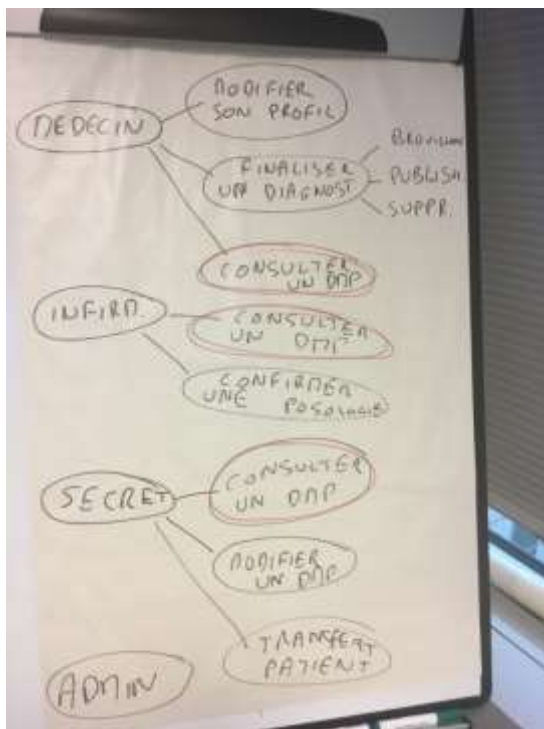 MEDECIN
MODIFIER
SON PROFIL
FINALISER
UN DIAGNOST
BROUILLON
PUBLISH.
SUPPR.
CONSULTER
UN DMP
INFIRM.
CONSULTER
UN DMP
CONFIRMER
UNE POSOLOGIE
SECRET
CONSULTER
UN DMP
MODIFIER
UN DMP
TRANSFERT
PATIENT
ADMIN